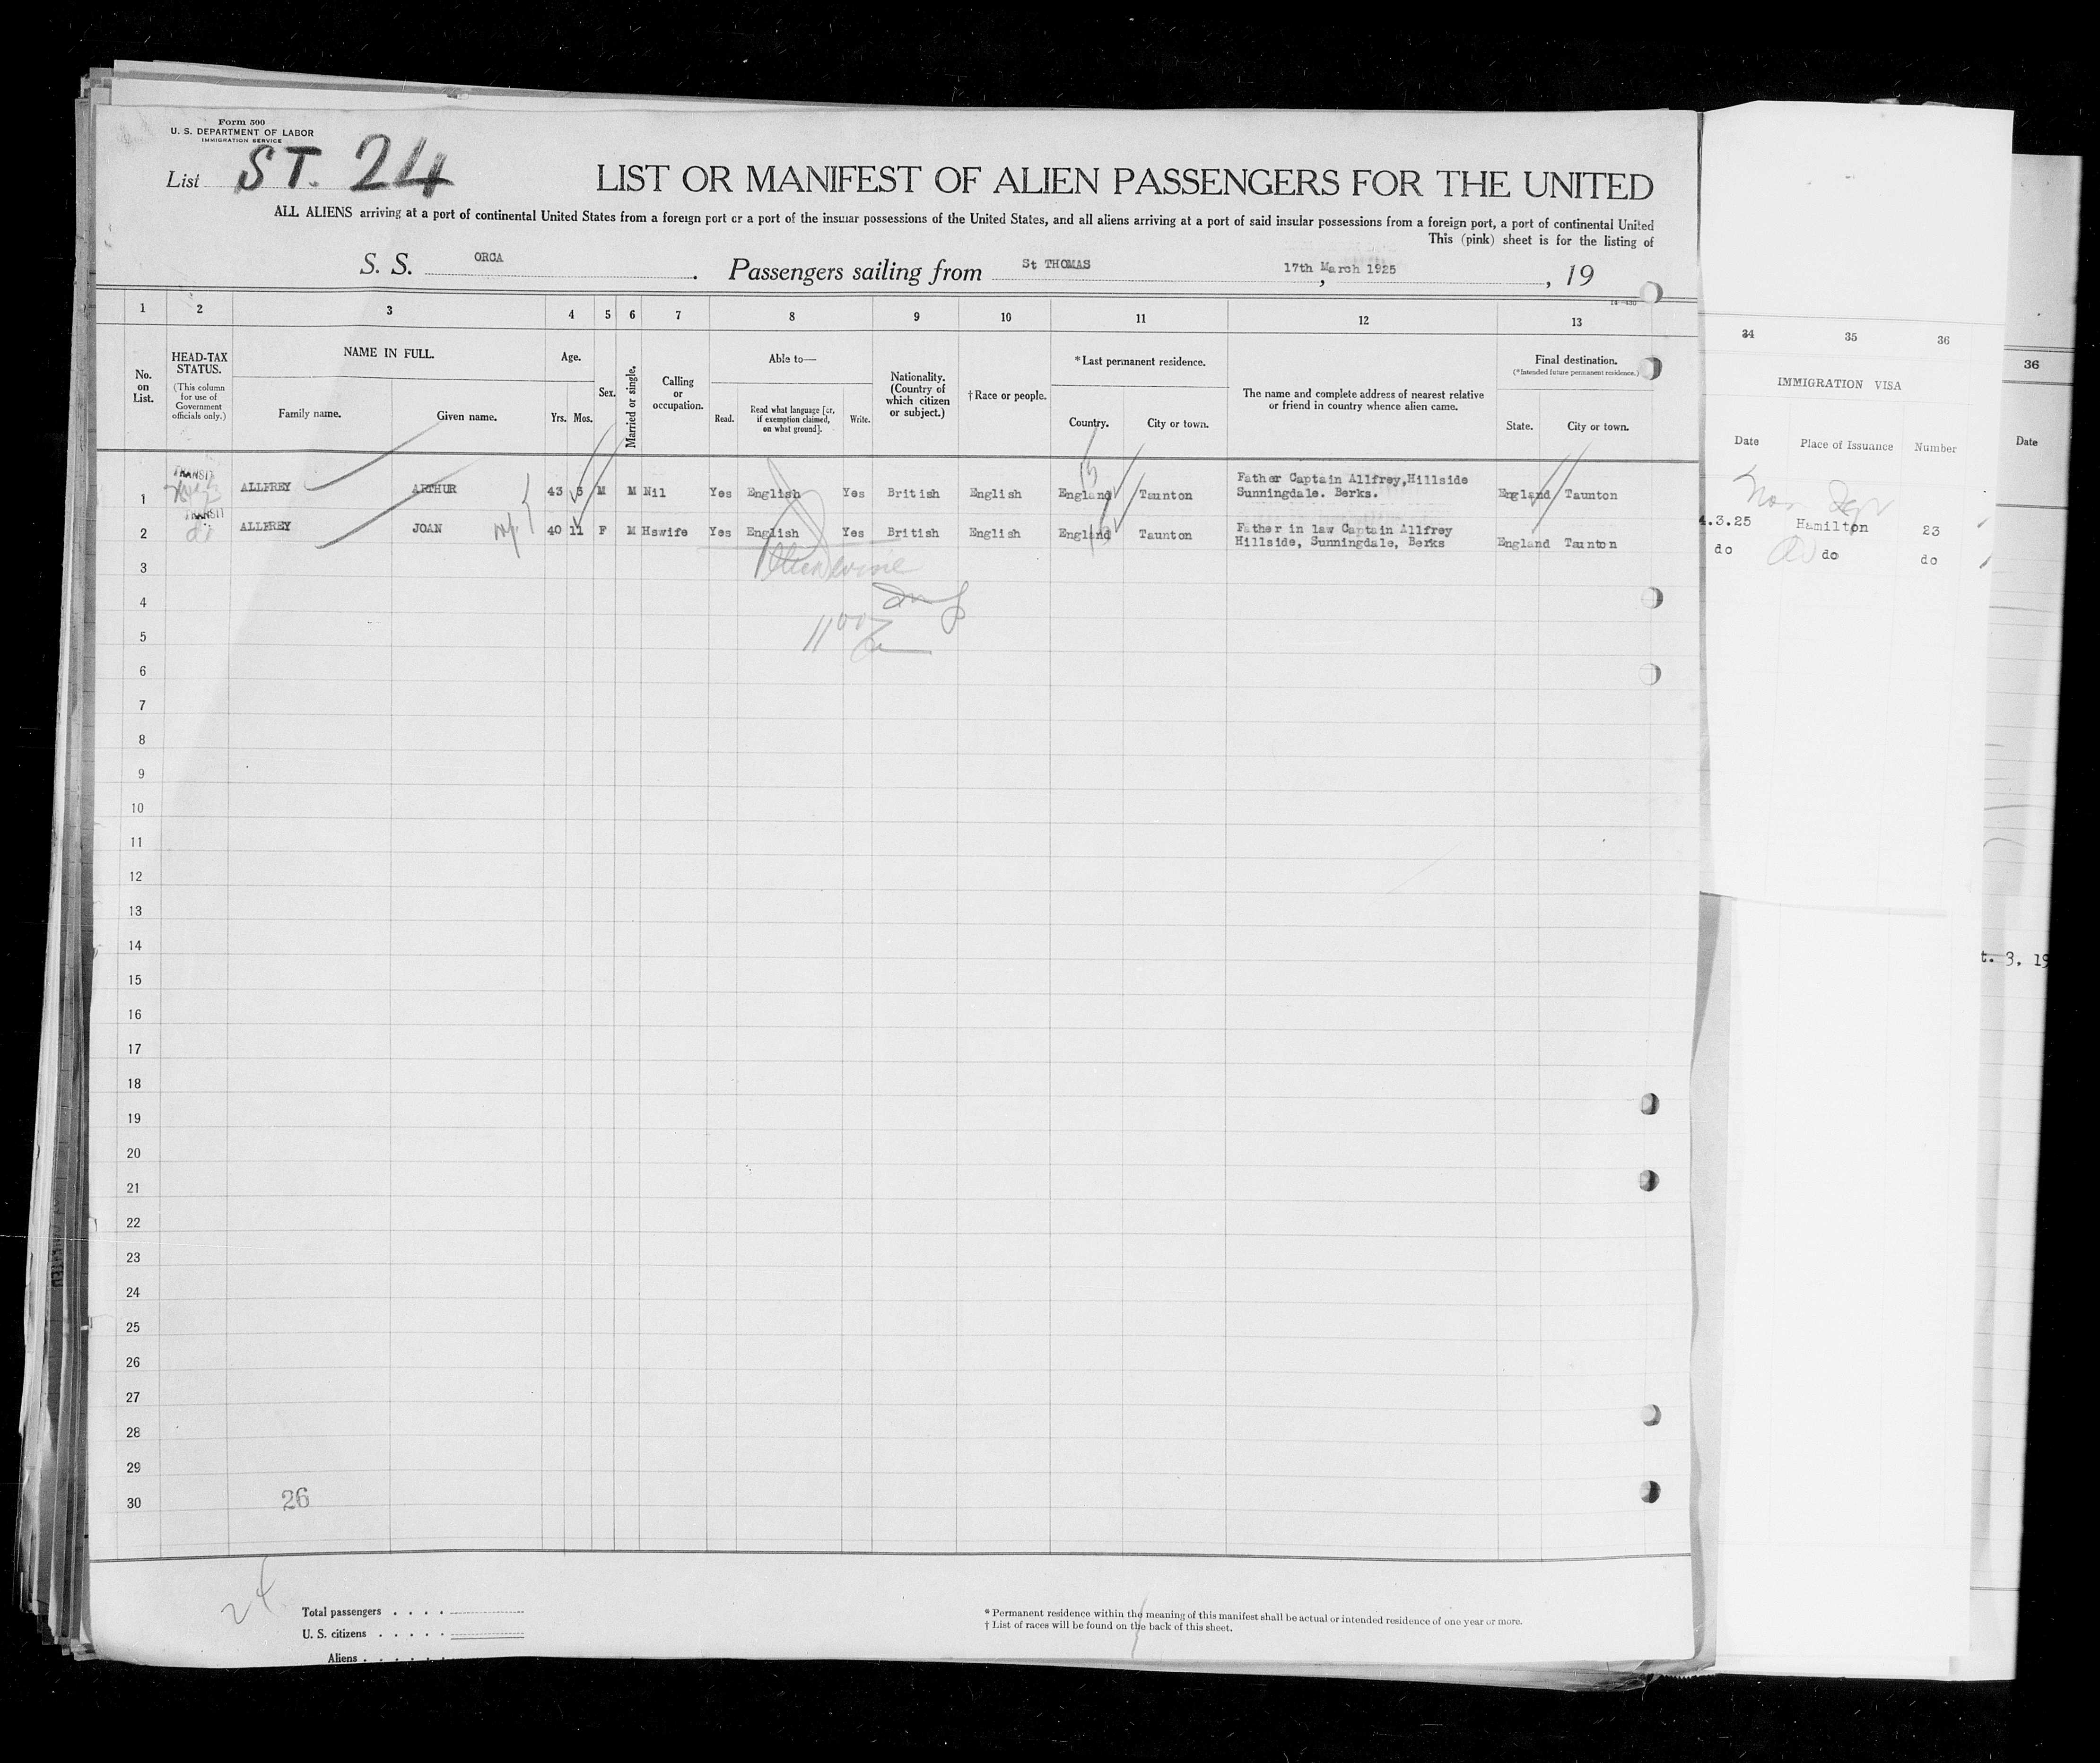 Form 500
U. S. DEPARTMENT OF LABOR
IMMIGRATION SERVICE
List ST. 24
LIST OR MANIFEST OF ALIEN PASSENGERS FOR THE UNITED
ALL ALIENS arriving at a port of continental United States from a foreign port or a port of the insular possessions of the United States, and all aliens arriving at a port of said insular possessions from a foreign port, a port of continental United
This (pink) sheet is for the listing of
S. S. ORCA . Passengers sailing from St THOMAS , 17th March 1925 , 19
1 2 3 4 5 6 7 8 9 10 11 12 13
No. on List.
HEAD-TAX STATUS.
(This column for use of Government officials only.)
NAME IN FULL.
Family name. Given name.
Age.
Yrs. Mos.
Sex.
Married or single.
Calling or occupation.
Able to—
Read. Read what language [or, if exemption claimed, on what ground]. Write.
Nationality. (Country of which citizen or subject.)
† Race or people.
* Last permanent residence.
Country. City or town.
The name and complete address of nearest relative or friend in country whence alien came.
Final destination.
(*Intended future permanent residence.)
State. City or town.
34 35 36
IMMIGRATION VISA
Date Place of Issuance Number
36
Date
TRANSIT
1 ALLFREY ARTHUR 43 5 M M Nil Yes English Yes British English England Taunton Father Captain Allfrey,Hillside Sunningdale. Berks. England Taunton
.3.25 Hamilton 23
TRANSIT
2 ALLFREY JOAN 40 11 F M Hswife Yes English Yes British English England Taunton Father in law Captain Allfrey Hillside, Sunningdale, Berks England Taunton
do do do
3
4
5
6
7
8
9
10
11
12
13
14
t. 3, 19
15
16
17
18
19
20
21
22
23
24
25
26
27
28
29
30
26
24
Total passengers . . . .
U. S. citizens . . . . .
Aliens . . . . . .
* Permanent residence within the meaning of this manifest shall be actual or intended residence of one year or more.
† List of races will be found on the back of this sheet.